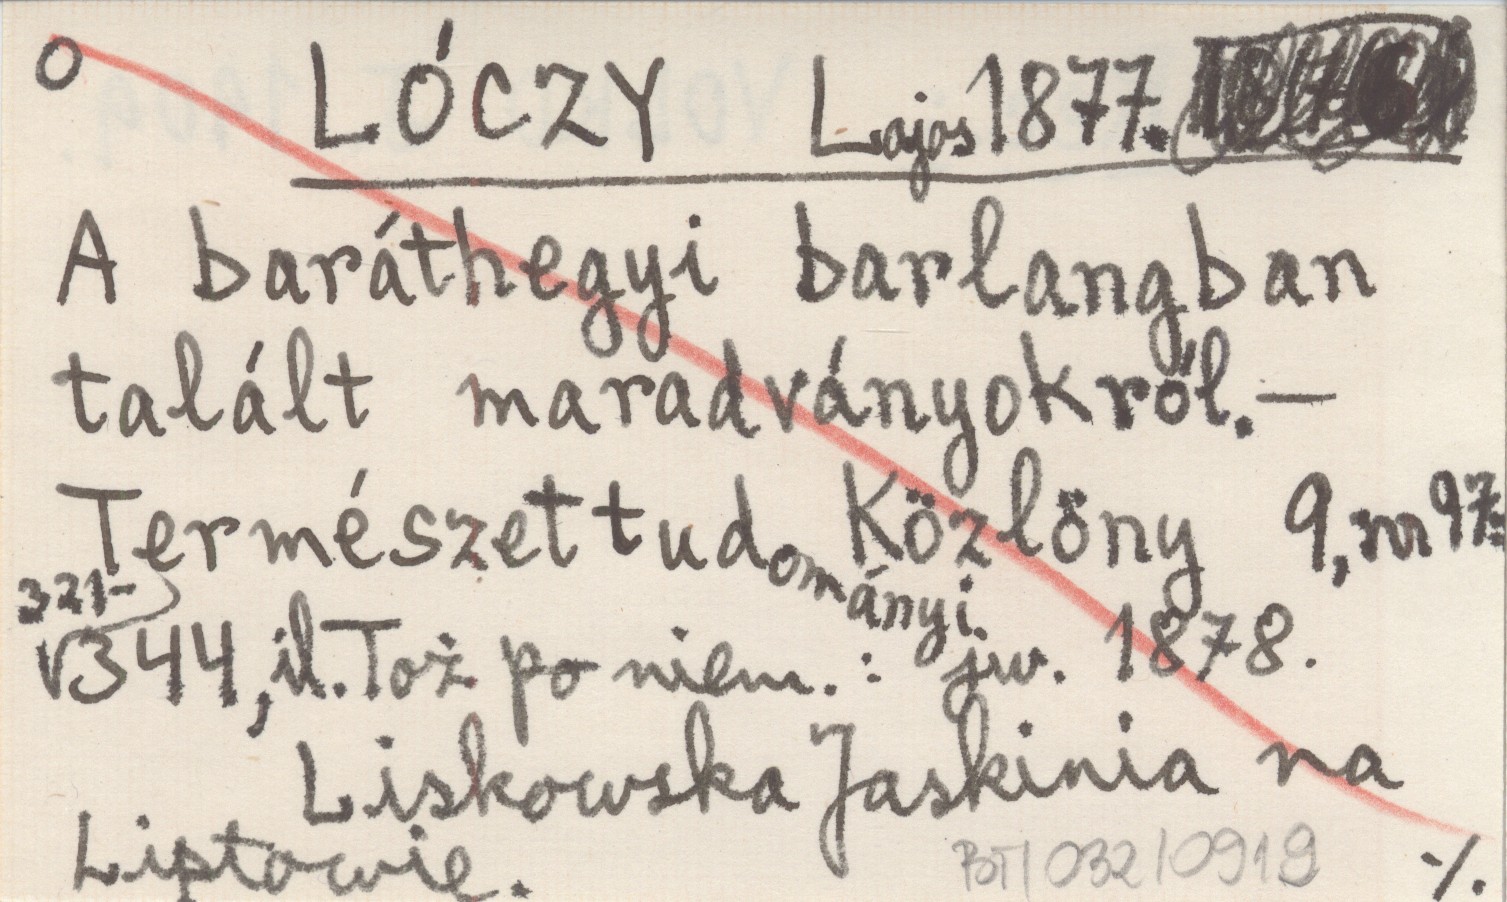 O LÓCZY Lajos 1877.
A baráthegyi barlangban
talált maradványokról.—
Természettudományi Közlöny 9, nr 97:
321-
344, il. Toż po niem.: jw. 1878.
Liskowska Jaskinia na
Liptowie.
BT/032/0919
./.